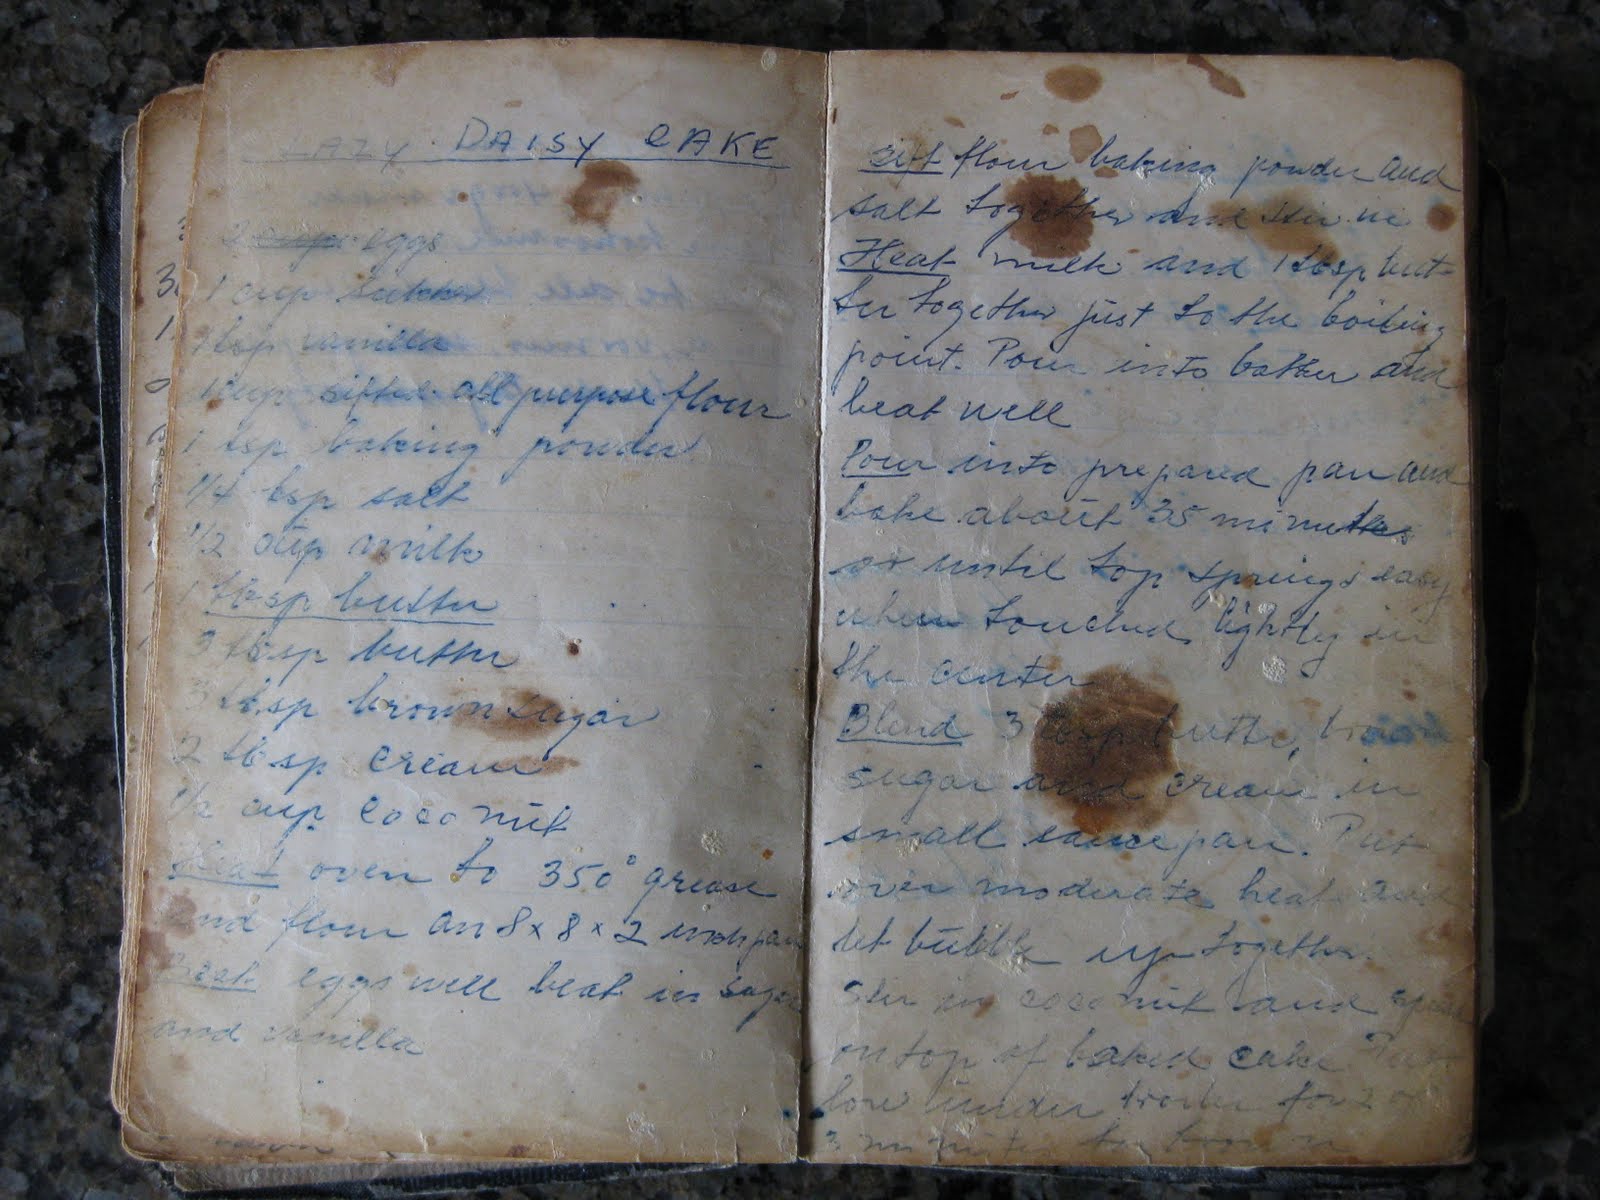 LAZY DAISY CAKE
2 eggs
1 cup
1 tsp vanilla
1 cup sifted all purpose flour
1 tsp baking powder
1/4 tsp salt
1/2 cup milk
1 tbsp butter
3 tbsp butter
3 tbsp brown sugar
2 tbsp cream
1/2 cup coconut
Heat oven to 350° grease
and flour an 8 x 8 x 2 inch pan
Beat eggs well beat in sugar
and vanilla
Sift flour baking powder and
salt together and stir in
Heat milk and 1 tbsp but-
ter together just to the boiling
point. Pour into batter and
beat well
Pour into prepared pan and
bake about 35 minutes
or until top springs easy
when touched lightly in
the center
Blend 3 tbsp butter, brown
sugar and cream in
small sauce pan. Put
over moderate heat and
let bubble up together.
Stir in coconut and spread
on top of baked cake. Put
low under broiler for 2 or
3 minutes to brown